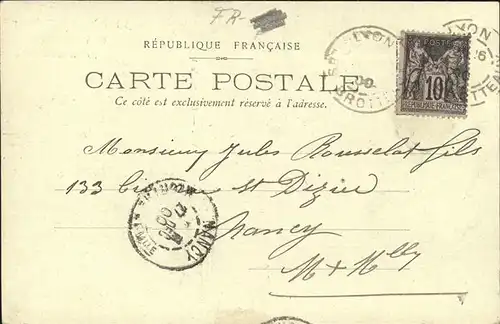 FR-
RÉPUBLIQUE FRANÇAISE
CARTE POSTALE
Ce côté est exclusivement réservé à l'adresse.
POSTE
10
RÉPUBLIQUE FRANÇAISE
LYON
LYON
BROTTEAUX
Monsieur Jules Rousselot fils
133 St Dizier
Nancy
M & Mlle
NANCY
MEURTHE